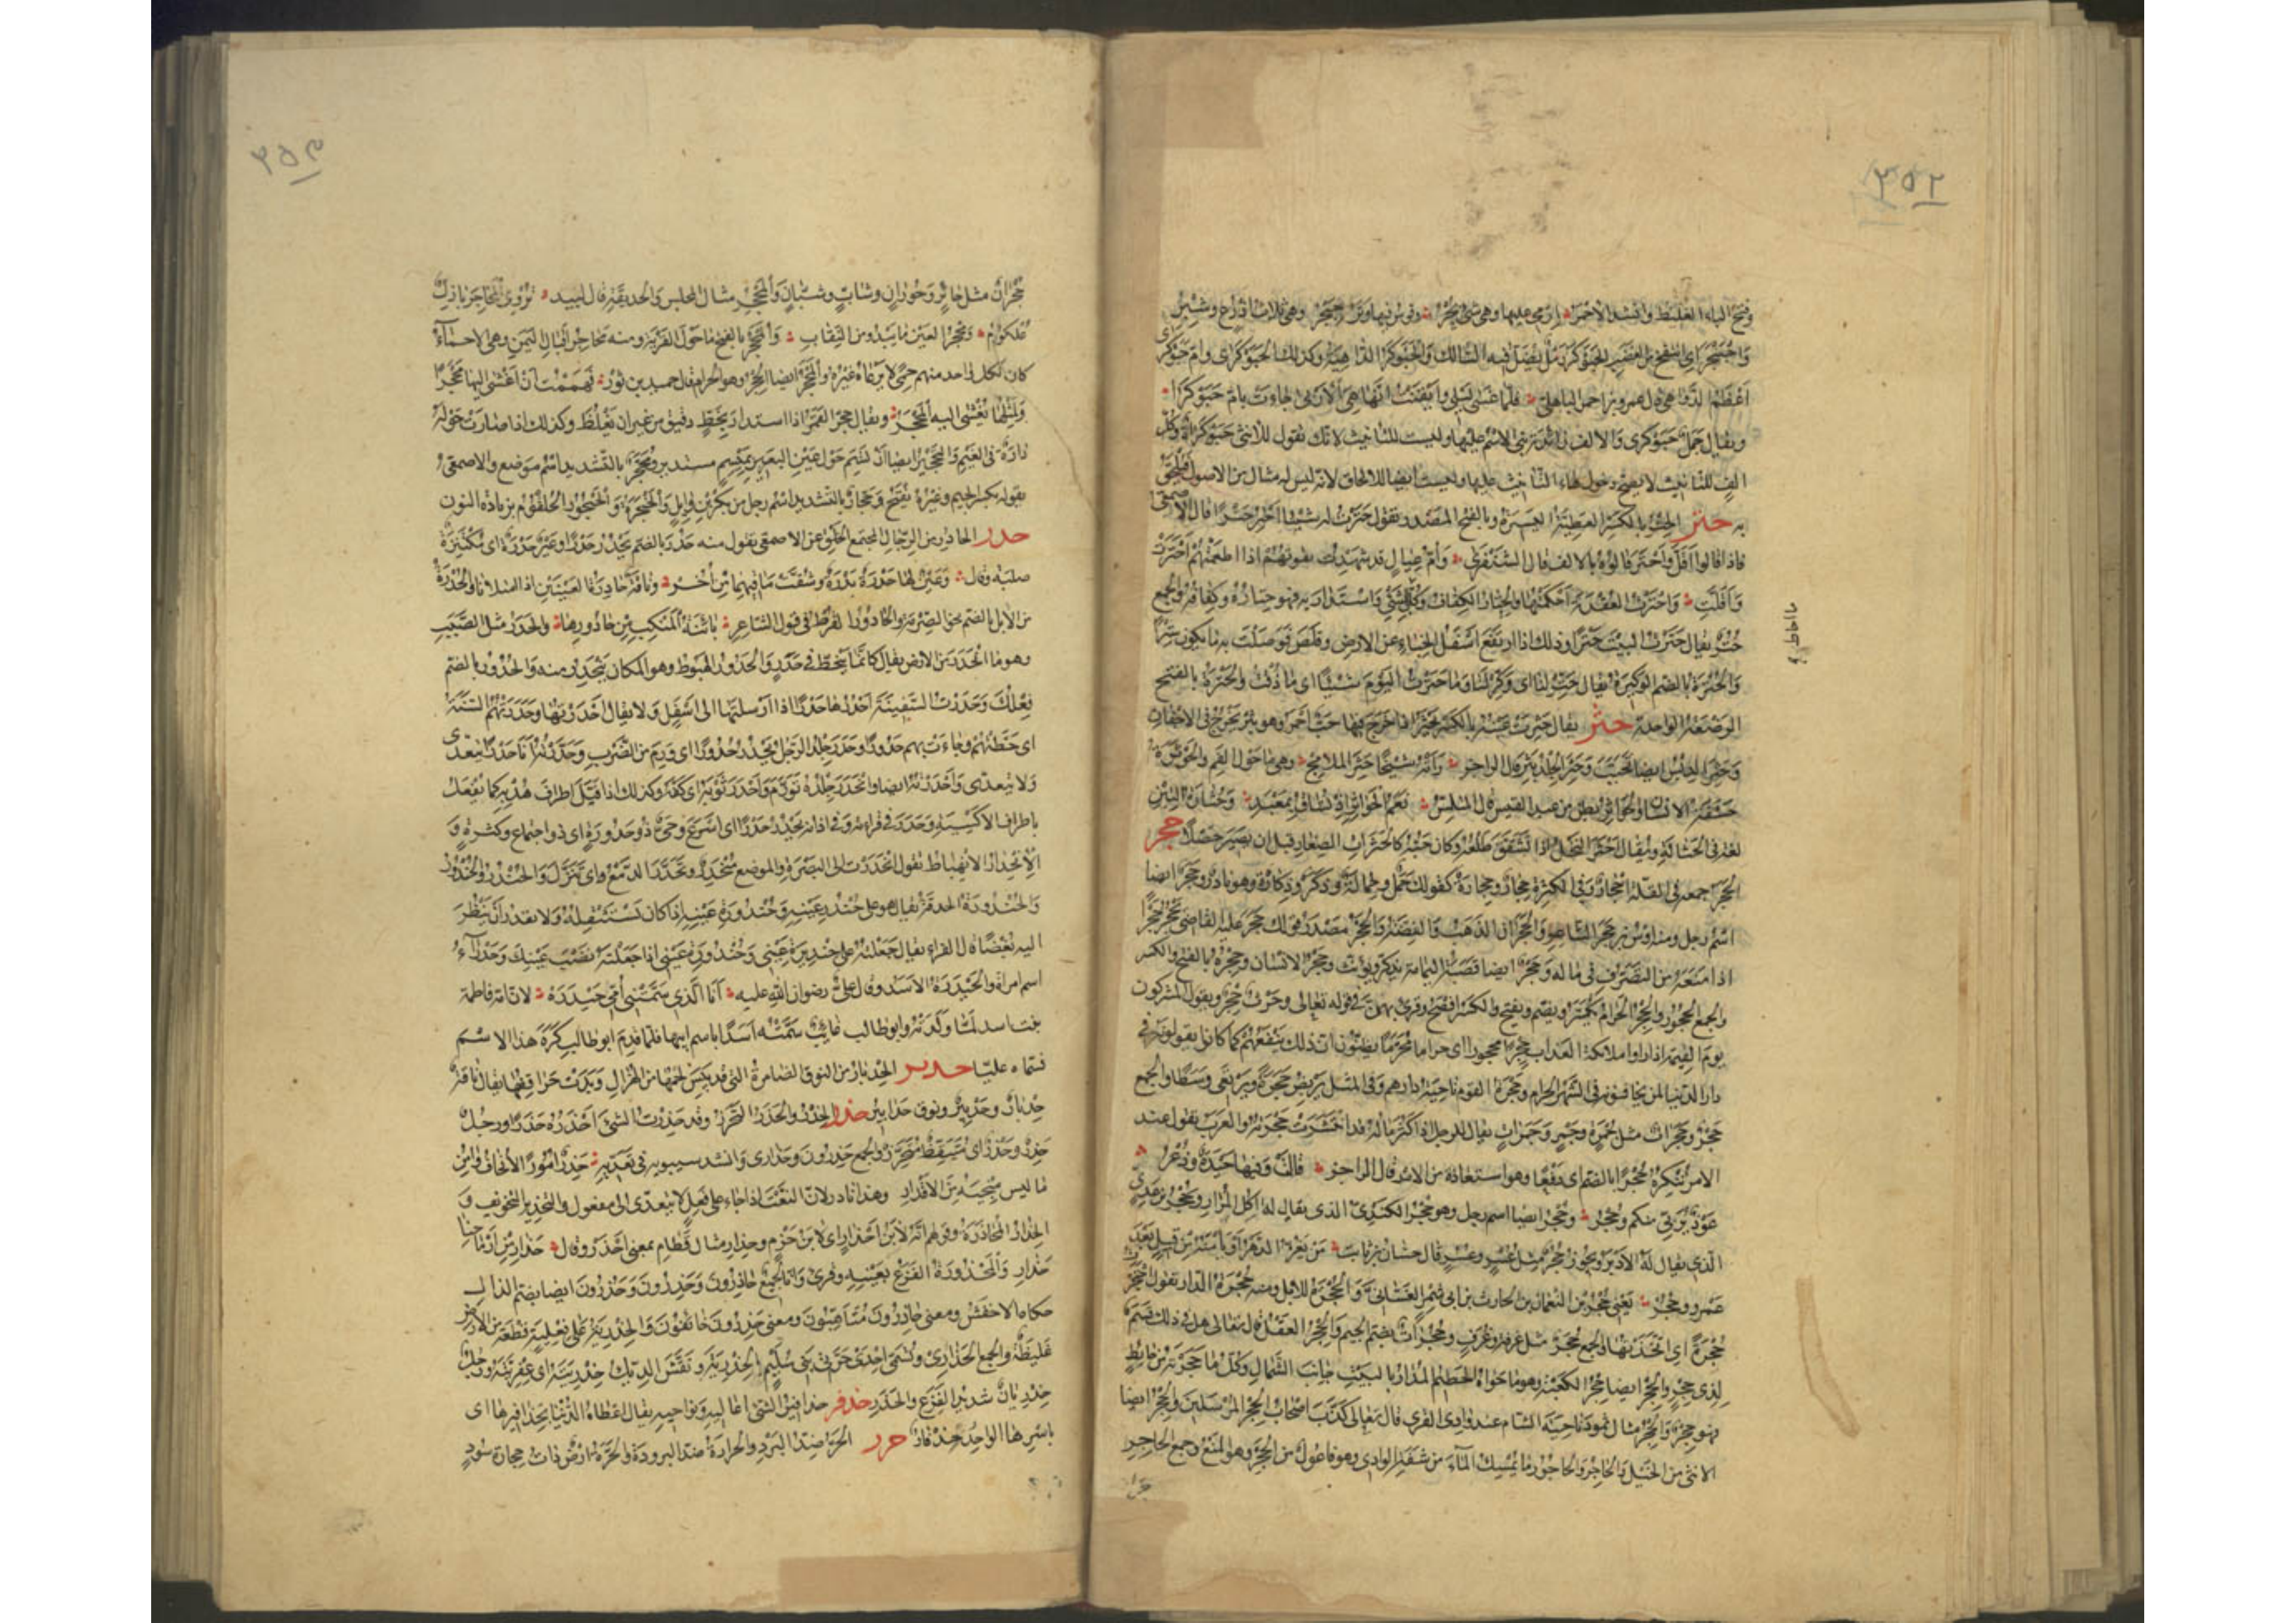 ٢٥٢
وفتح الباء الغليظ وانشد الاحمر ارمى عليها وهى شىء بجر والقوس فيها وتر حبجر وهى ثلاث اذرع وشبر
واحبنجر اى انتفخ من الغضب الحبوكر رمل يضل فيه السالك والحبوكر الداهية وكذلك الحبوكرى وام حبوكرى
اعظم الدواهى قال عمرو بن احمر الباهلى فلما غسى ليلى وايقنت انها هى الاربى جاءت بام حبوكرا
ويقال جمل حبوكرى والالف زائدة بنى الاسم عليها وليست للتانيث لانك تقول للانثى حبوكراة وكل
الف للتانيث لا يصح دخول هاء التانيث عليها وليست ايضا للالحاق لانه ليس له مثال من الاصول فيلحق
به حتر الحتر بالكسر العطية اليسيرة وبالفتح المصدر تقول حترت له شيئا احتر حترا قال الاصمعى
فاذا قالوا اقل واحتر قالوه بالالف قال الشنفرى وام عيال قد شهدت تقوتهم اذا اطعمتهم احترت
واقلت واحترت العقدة احكمتها والحتار الكفاف وكل شىء واستدار به فهو حتاره وكفافه والجمع
حتر يقال حترت البيت حترا وذلك اذا ارتفع اسفل الخباء عن الارض وقلص فوصلت به ما يكون سترا
والحترة بالضم الوكيرة يقال حتر لنا اى وكر لنا وما حترت اليوم شيئا اى ما ذقت والحترة بالفتح
الرضعة الواحدة حثر يقال حثرت عينه بالكسر تحثر اذا خرج فيها حب احمر وهو بثر يخرج فى الاجفان
وحثر الدبس ايضا تحبب وحثر الجلد بثر قال الراجز رأته شيخا حثر الملامج وهى ما حول الفم والحوثرة
حشفة الانسان والحواثر بطن من عبد القيس قال المتلمس نعم الحواثر اذ تساق بمعبد وحثارة التبن
لغة فى الحثالة ويقال احثر النخل اذا تشقق طلعه وكان حبه كالحثرات الصغار قبل ان يصير حصلا حجر
الحجر جمعه فى القلة احجار وفى الكثرة حجار وحجارة كقولك جمل وجمالة وذكر وذكارة وهو نادر وحجر ايضا
اسم رجل ومنه اوس بن حجر الشاعر والحجران الذهب والفضة والحجر مصدر قولك حجر عليه القاضى يحجر حجرا
اذا منعه من التصرف فى ماله وحجر ايضا قصبة اليمامة يذكر ويؤنث وحجر الانسان وحجره بالفتح والكسر
والجمع الحجور والحجر الحرام يكسر ويضم ويفتح والكسر افصح وقرئ بهن فى قوله تعالى وحرث حجر ويقول المشركون
يوم القيمة اذا راوا ملائكة العذاب حجرا محجورا اى حراما محرما يظنون ان ذلك ينفعهم كما كانوا يقولونه فى
دار الدنيا لمن يخافونه فى الشهر الحرام وحجرة القوم ناحية دارهم وفى المثل يربض حجرة ويرتعى وسطا والجمع
حجر وحجرات مثل جمرة وجمر وجمرات يقال للرجل اذا كثر ماله قد انتشرت حجرته والعرب تقول عند
الامر تنكره حجرا له بالضم اى دفعا وهو استعاذة من الامر قال الراجز قالت وفيها حيدة وذعر
عوذ بربى منكم وحجر وحجر ايضا اسم رجل وهو حجر الكندى الذى يقال له اكل المرار وحجر بن عدى
الذى يقال له الادبر ويجوز حجر مثل عسر وعسر قال حسان بن ثابت من يغر الدهر او يأمنه من قتيل بعد
عمرو وحجر يعنى حجر بن النعمان بن الحارث بن ابى شمر الغسانى والحجرة للابل ومنه حجرة الدار تقول احتجر
حجرة اى اتخذتها والجمع حجر مثل غرفة وغرف وحجرات بضم الجيم والحجر العقل قال تعالى هل فى ذلك قسم
لذى حجر والحجر ايضا حجر الكعبة وهو ما حواه الحطيم المدار بالبيت جانب الشمال وكل ما حجرته من حائط
فهو حجر والحجر منازل ثمود ناحية الشام عند وادى القرى قال تعالى كذب اصحاب الحجر المرسلين والحجر ايضا
الانثى من الخيل والحاجر والحاجور ما يمسك الماء من شفة الوادى وهو فاعول من الحجر وهو المنع وجمع الحاجر
حجرا
٢٥٣
حجران مثل حائر وحوران وشاب وشبان والمحجر مثال المجلس والحديقة قال لبيد تروى المحاجر بازل
علكوم ومحجر العين ما يبدو من النقاب والمحجر بالفتح ما حول القرية ومنه محاجر اقيال اليمن وهى الاحماء
كان لكل واحد منهم حمى لا يرعاه غيره والمحجر ايضا الحجر وهو الحرام قال حميد بن ثور فهممت ان اغشى اليها محجرا
ولمثلها يغشى اليه المحجر ويقال حجر القمر اذا استدار بخط دقيق من غير ان يغلظ وكذلك اذا صارت حوله
دارة فى الغيم والتحجير ايضا ان تسم حول عين البعير بميسم مستدير ومحجر بالتشديد اسم موضع والاصمعى
يقوله بكسر الجيم وغيره يفتح وحجار بالتشديد اسم رجل من بكر بن وائل والحنجرة والحنجور الحلقوم بزيادة النون
حدر الحادر من الرجال المجتمع الخلق عن الاصمعى تقول منه حدر بالضم يحدر حدرا وعين حدرة اى مكتنزة
صلبة وقال وعين لها حدرة بدرة وشقت مآقيهما من اخر وناقة حادرة العينين اذا امتلاتا والحدرة
من الابل بالضم نحو الصرمة والحادور القرط فى قول الشاعر بائنة المنكب من حادورها والحدر مثل الصبب
وهو ما انحدر من الارض يقال كانما ينحط فى حدر والحدور الهبوط وهو المكان ينحدر منه والحدور بالضم
فعلك وحدرت السفينة احدرها حدرا اذا ارسلتها الى اسفل ولا يقال احدرتها وحدرتهم السنة
اى حطتهم وجاءت بهم حدورا وحدر جلد الرجل يحدر حدورا اى ورم من الضرب وحدرته انا حدرا يتعدى
ولا يتعدى واحدرته ايضا وانحدر جلده تورم واحدر ثوبه اى كفه وكذلك اذا فتل اطراف هدبه كما يفعل
باطراف الاكسية وحدر فى قراءته وفى اذانه يحدر حدرا اى اسرع وحى ذو حدورة اى ذو اجتماع وكثرة و
الانحدار الانهباط تقول انحدرت الى البصرة والموضع منحدر وتحدر الدمع اى تنزل والحندر والحندور
والحندورة الحدقة يقال هو على حندر عينه وحندورة عينه اذا كان يستثقله ولا يقدر ان ينظر
اليه بغضا قال الفراء يقال جعلته على حنديرة عينى وحندورة عينى اذا جعلته نصب عينك وحدراء
اسم امراة والحيدرة الاسد وقال على رضوان الله عليه انا الذى سمتنى امى حيدره لان امه فاطمة
بنت اسد لما ولدته وابو طالب غائب سمته اسدا باسم ابيها فلما قدم ابو طالب كره هذا الاسم
فسماه عليا حدبر الحدبار من النوق الضامرة التى قد يبس لحمها من الهزال وبدت حراقفها يقال ناقة
حدبار وحدبير ونوق حدابير حذر الحذر والحذر التحرز وقد حذرت الشىء احذره حذرا ورجل
حذر وحذر اى متيقظ متحرز والجمع حذرون وحذارى وانشد سيبويه فى تعديه حذر امورا لا تخاف وامن
ما ليس منجيه من الاقدار وهذا نادر لان النعت اذا جاء على فعل لا يتعدى الى مفعول والتحذير التخويف و
الحذار المحاذرة وقولهم انه لابن احذار اى لابن حزم وحذار مثال قطام بمعنى احذر وقال حذار من ارماحنا
حذار والمحذورة الفزع بعينه وقرئ وانا لجميع حاذرون وحذرون وحذرون ايضا بضم الذال
حكاه الاخفش ومعنى حاذرون متأهبون ومعنى حذرون خائفون والحذرية على فعلية قطعة من الارض
غليظة والجمع الحذارى وتسمى احدى حرتى بنى سليم الحذرية ونفش الديك حذريته اى عفريته ورجل
حذريان شديد الفزع والحذر حذفر حذافير الشىء اعاليه ونواحيه يقال اعطاه الدنيا بحذافيرها اى
باسرها الواحد حذفار حرر الحر ضد البرد والحرارة ضد البرودة والحرة ارض ذات حجارة سود